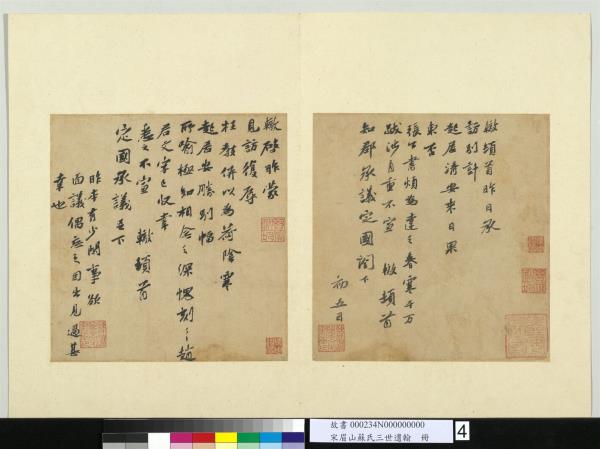 轍頓首昨日承
訪別計
起居清安來日果
東否
公書煩為達之春寒千万
跋涉自重不宣 轍頓首
知郡承議定國閣下
初五日
轍啟昨蒙
見訪復辱
枉教併以為荷陰寒
起居安勝別幅
所喻極知相念之深愧刻之趙
君文字已收幸
悉之不宣 轍頓首
定國承議足下
昨本有少閑事欲
面議偶忘之因出見過甚
幸也
故書 000234N000000000
宋眉山蘇氏三世遺翰 冊
4